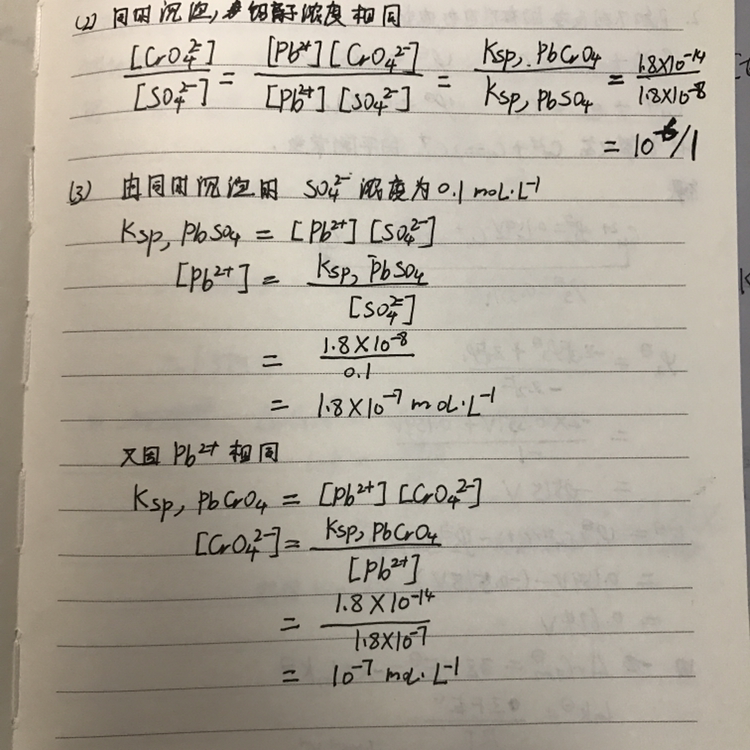 (2) 同时沉淀, 铅离子浓度相同
[CrO₄²⁻]/[SO₄²⁻] = [Pb²⁺][CrO₄²⁻]/[Pb²⁺][SO₄²⁻] = Ksp, PbCrO₄/Ksp, PbSO₄ = 1.8×10⁻¹⁴/1.8×10⁻⁸
= 10⁻⁶/1
(3) 由同时沉淀时 SO₄²⁻ 浓度为 0.1 mol·L⁻¹
Ksp, PbSO₄ = [Pb²⁺][SO₄²⁻]
[Pb²⁺] = Ksp, PbSO₄/[SO₄²⁻]
= 1.8×10⁻⁸/0.1
= 1.8×10⁻⁷ mol·L⁻¹
又因 Pb²⁺ 相同
Ksp, PbCrO₄ = [Pb²⁺][CrO₄²⁻]
[CrO₄²⁻] = Ksp, PbCrO₄/[Pb²⁺]
= 1.8×10⁻¹⁴/1.8×10⁻⁷
= 10⁻⁷ mol·L⁻¹